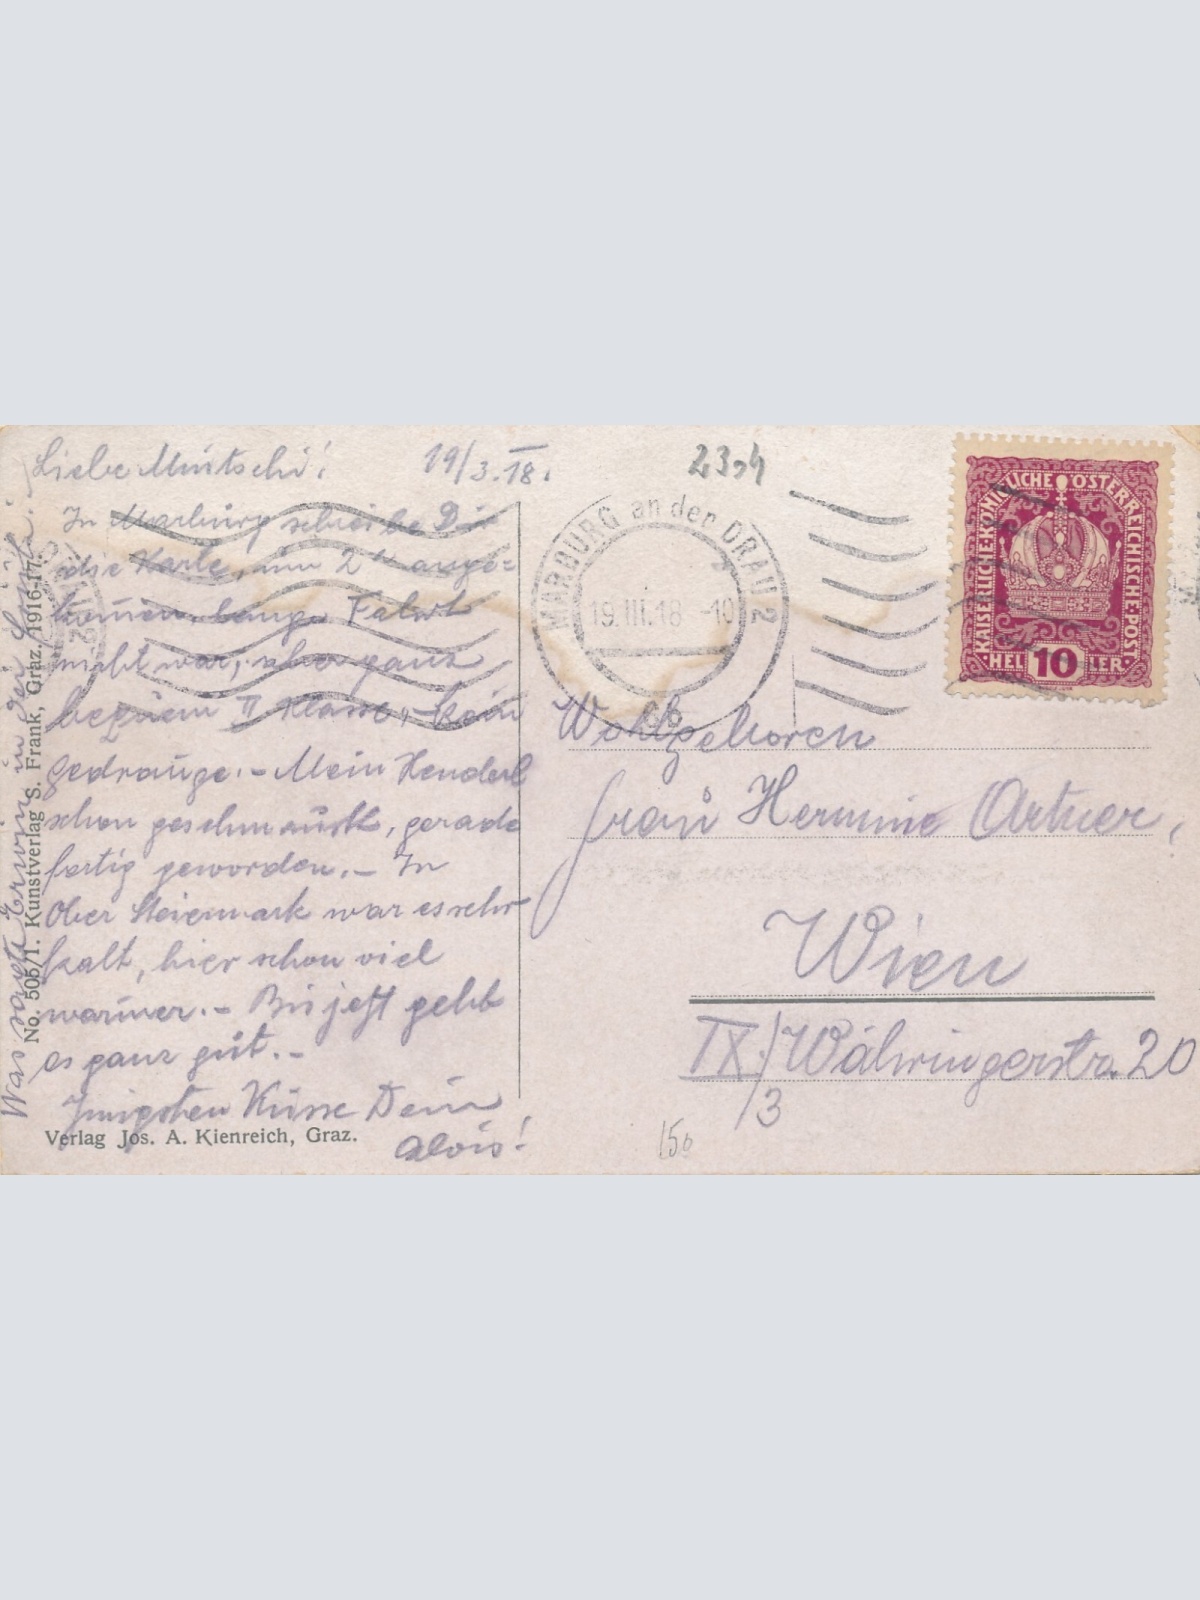 Liebe Mutschi! 19/3.18.
In Marburg schreibe Dir
die Karte, um 2 ange=
kom̄en, lange Fahrt
nicht war, aber ganz
bequem II Klasse, – kein
gedränge. – Mein Henderl
schon geschmaust, gerade
fertig geworden. – In
Ober Steiermark war es sehr
kalt, hier schon viel
wärmer. – Bis jetzt geht
es ganz gut. –
Innigsten Küsse Dein
Alois!
Was sagt Erwin in der
No. 505/1. Kunstverlag S. Frank, Graz, 1916-17.
Verlag Jos. A. Kienreich, Graz.
2304
MARBURG an der DRAU 2
19.III.18 -10
6b
KAISERLICHE·KÖNIGLICHE·ÖSTERREICHISCHE·POST
·HEL 10 LER·
Wohlgeboren
Frau Hermine Artner,
Wien
IX/Währingerstr. 20
/3
150